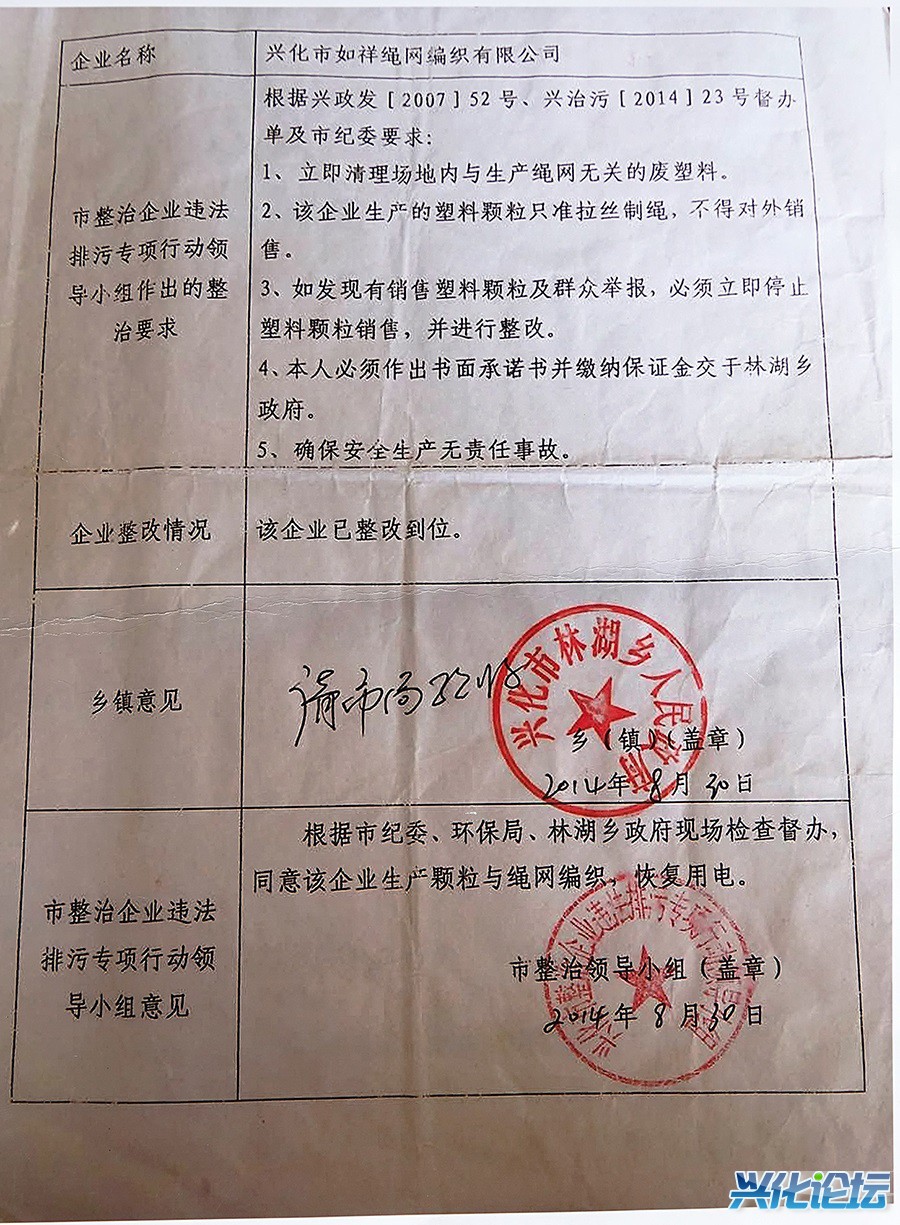 企业名称
兴化市如祥绳网编织有限公司
市整治企业违法
排污专项行动领
导小组作出的整
治要求
根据兴政发[2007]52号、兴治污[2014]23号督办
单及市纪委要求:
1、立即清理场地内与生产绳网无关的废塑料。
2、该企业生产的塑料颗粒只准拉丝制绳,不得对外销
售。
3、如发现有销售塑料颗粒及群众举报,必须立即停止
塑料颗粒销售,并进行整改。
4、本人必须作出书面承诺书并缴纳保证金交于林湖乡
政府。
5、确保安全生产无责任事故。
企业整改情况
该企业已整改到位。
乡镇意见
兴化市林湖乡人民政府
乡(镇)(盖章)
2014年8月30日
市整治企业违法
排污专项行动领
导小组意见
根据市纪委、环保局、林湖乡政府现场检查督办,
同意该企业生产颗粒与绳网编织,恢复用电。
市整治领导小组(盖章)
2014年8月30日
兴化论坛